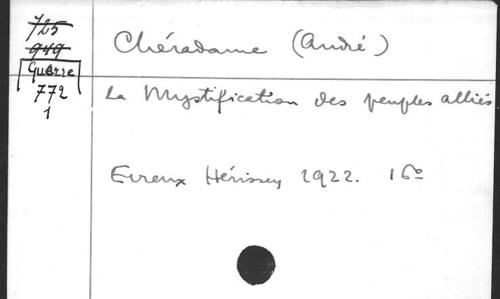 725
949
Guerre
772
1
Chéradame (André)
La Mystification des peuples alliés
Evreux Hérissey 1922. 16º